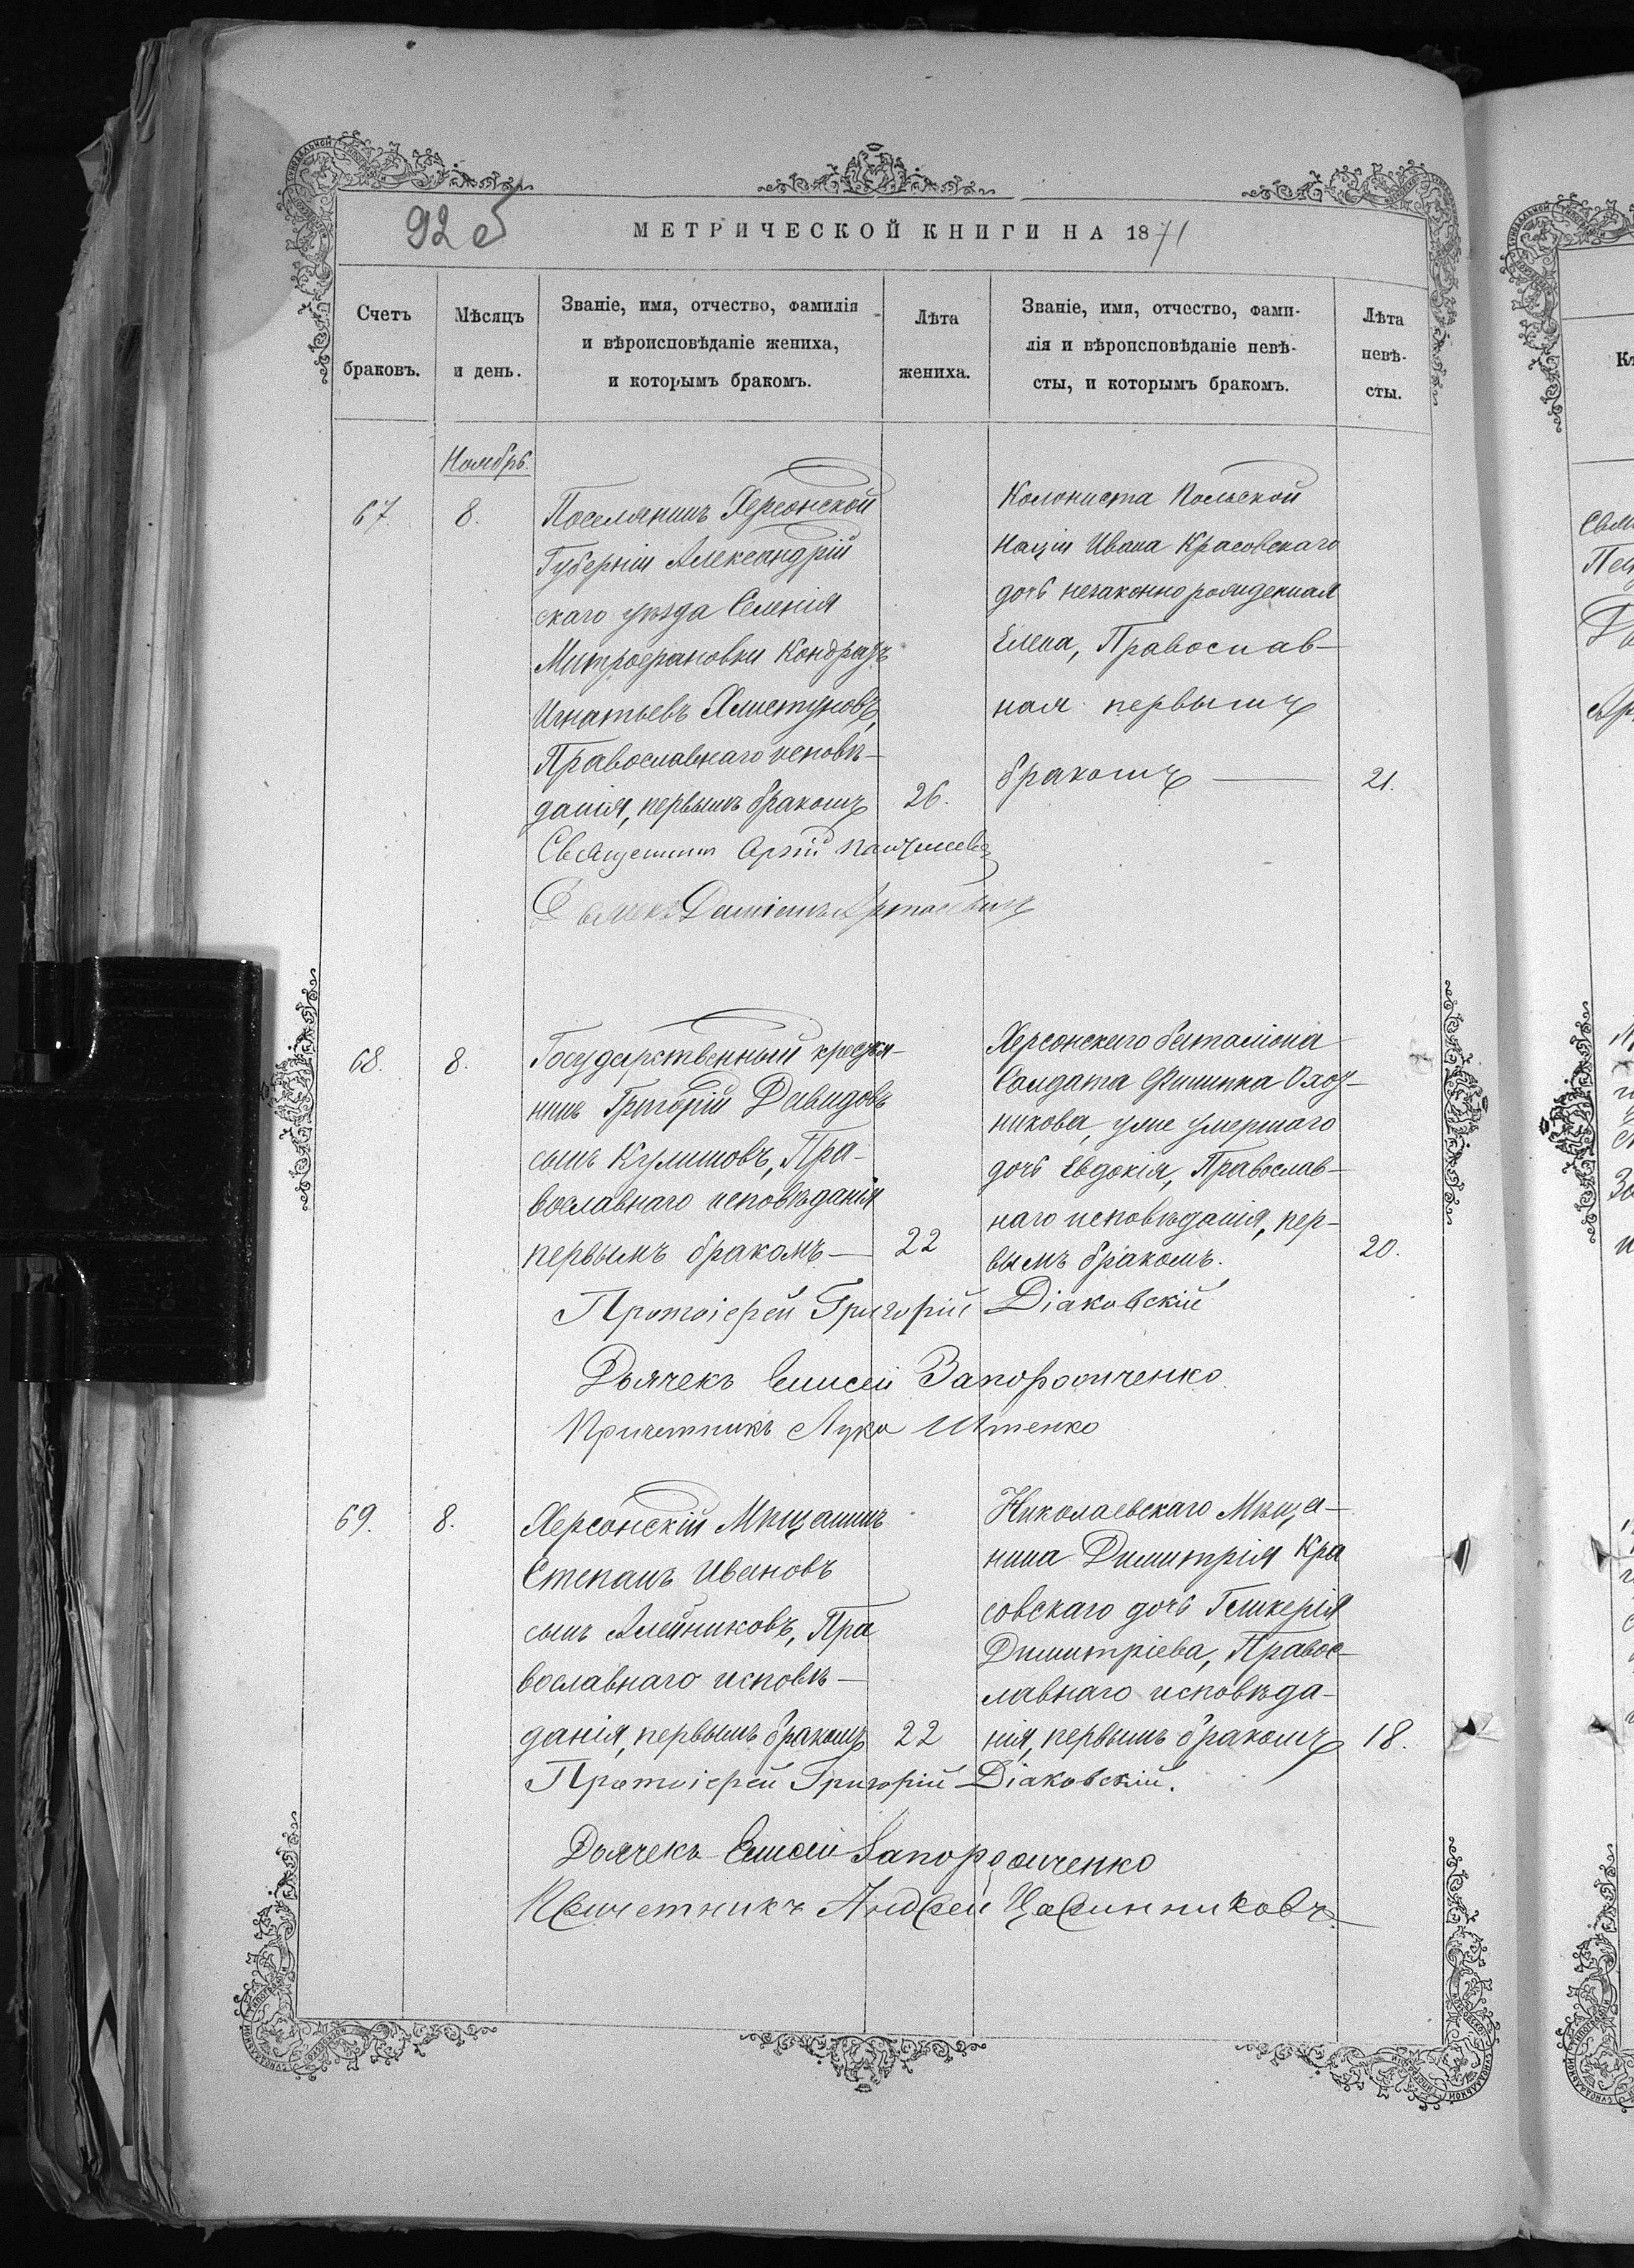 92 об
МЕТРИЧЕСКОЙ КНИГИ НА 1871
Счетъ браковъ.
Мѣсяцъ и день.
Званіе, имя, отчество, фамилія
и вѣроисповѣданіе жениха,
и которымъ бракомъ.
Лѣта жениха.
Званіе, имя, отчество, фами-
лія и вѣроисповѣданіе невѣ-
сты, и которымъ бракомъ.
Лѣта
невѣ-
сты.
Ноябрь.
67.
8.
Поселянинъ Херсонской
Губерніи Александрій
скаго уѣзда Селенія
Митрофановки Кондратъ
Игнатьевъ
Православнаго исповѣ-
данія, первымъ бракомъ
26.
Колониста Польской
націи Ивана Красовскаго
дочь незаконнорожденная
Елена, Православ-
ная первымъ
бракомъ —
21.
Священникъ
68.
8.
Государственный крестья-
нинъ Григорій Давидовъ
сынъ Кулишовъ, Пра-
вославнаго исповѣданія
первымъ бракомъ —
22
Херсонскаго баталіона
Солдата Филипа
уже умершаго
дочь Евдокія, Православ-
наго исповѣданія, пер-
вымъ бракомъ.
20.
Протоіерей Григорій Діаковскій
Дьячекъ Елисей Запорожченко
Причетникъ Лука
69.
8.
Херсонскій Мѣщанинъ
Степанъ Ивановъ
сынъ Алейниковъ, Пра
вославнаго исповѣ-
данія, первымъ бракомъ
22
Николаевскаго Мѣща-
нина Димитрія Кра
совскаго дочь Гликерія
Димитріева, Правос-
лавнаго исповѣда-
нія, первымъ бракомъ
18.
Протоіерей Григорій Діаковскій.
Дьячекъ Елисей Запорожченко
Причетникъ Андрей Царинниковъ